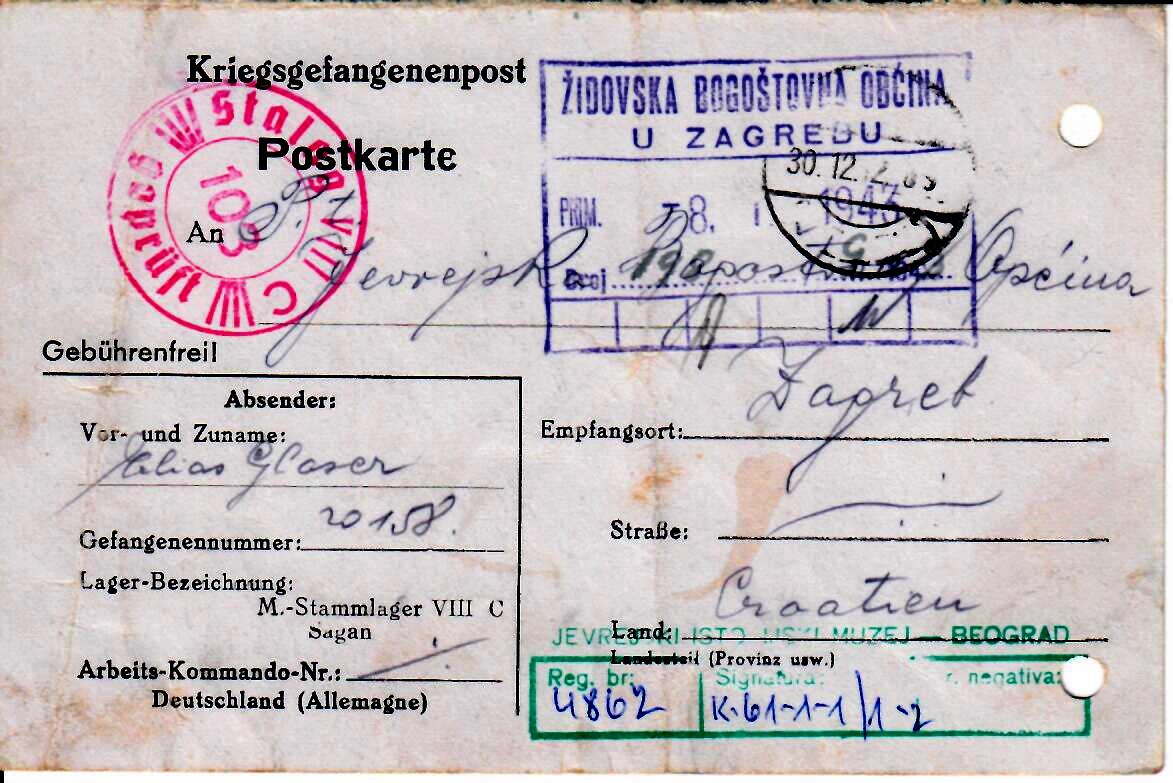 Kriegsgefangenenpost
Postkarte
Stalag VIII C
Geprüft
103
ŽIDOVSKA BOGOŠTOVNA OBĆINA
U ZAGREBU
30.12.42
PRIM. 8. I. 1943
Broj
An P. T.
Jevrejska Bogoštovna Općina
Gebührenfrei!
Zagreb
Absender:
Vor- und Zuname:
Elias Glaser
Empfangsort:
Gefangenennummer: 20158.
Straße:
Lager-Bezeichnung:
M.-Stammlager VIII C
Sagan
Croatien
Land:
Landesteil (Provinz usw.)
Arbeits-Kommando-Nr.:
Deutschland (Allemagne)
JEVREJSKI ISTORIJSKI MUZEJ — BEOGRAD
Reg. br: Signatura: Br. negativa:
4862 K-61-1-1/1-2